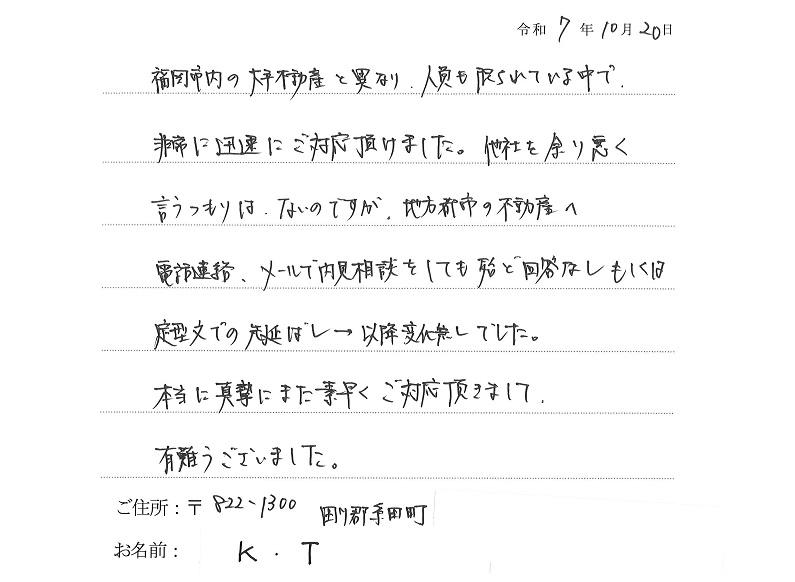 令和 7 年 10月 20日
福岡市内の大手不動産と異なり、人員も限られている中で、
非常に迅速にご対応頂けました。他社を余り悪く
言うつもりは、ないのですが、地方都市の不動産へ
電話連絡、メールで内見相談をしても殆ど回答なしもしくは
定型文での先延ばし→以降変化無しでした。
本当に真摯にまた素早くご対応頂きまして、
有難うございました。
ご住所：〒822-1300 田川郡糸田町
お名前： K・T